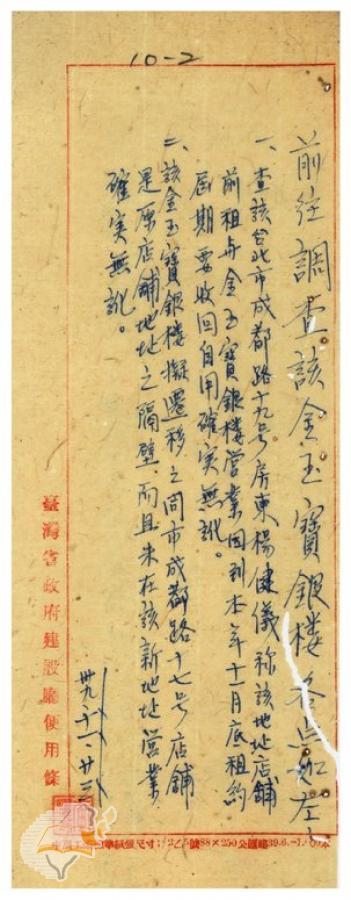 10-2
前往調查該金玉寶銀楼各点如左、
一、查該台北市成都路十九号房東楊健儀称該地址店舖
前租与金玉寶銀楼営業因到本年十一月底租約
屆期要收回自用確实無訛。
二、該金玉寶銀楼擬遷移之同市成都路十七号店舖
是原店舖地址之隔壁、而且未在該新地址営業
確实無訛。
臺灣省政府建設廳便用條
卅九、十一、廿三